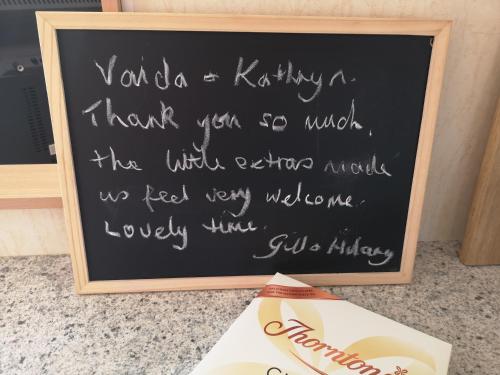 Vaida & Kathryn.
Thank you so much.
the little extras made
us feel very welcome.
Lovely time.
Gill & Hilary
Thorntons